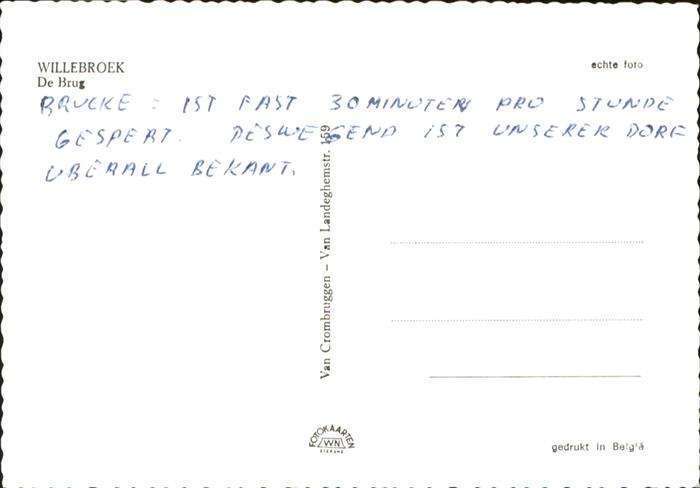 WILLEBROEK
De Brug
echte foto
BRUCKE : IST FAST 30 MINUTEN PRO STUNDE
GESPERT. DESWEGEND IST UNSERER DORF
UBERALL BEKANT.
Van Crombruggen – Van Landeghemstr. 159
FOTOKAARTEN
WN
gedrukt in België